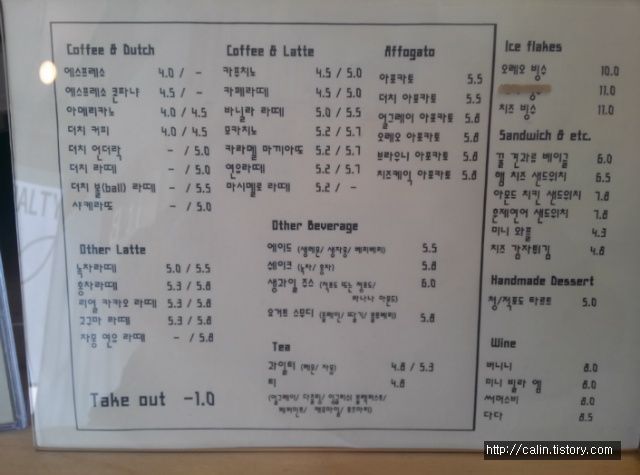 Coffee & Dutch
에스프레소 4.0 / -
에스프레소 콘파냐 4.5 / -
아메리카노 4.0 / 4.5
더치 커피 4.0 / 4.5
더치 언더락 - / 5.0
더치 라떼 - / 5.0
더치 볼(ball) 라떼 - / 5.5
샤케라또 - / 5.0
Other Latte
녹차라떼 5.0 / 5.5
홍차라떼 5.3 / 5.8
리얼 카카오 라떼 5.3 / 5.8
고구마 라떼 5.3 / 5.8
자몽 연유 라떼 - / 5.8
Take out -1.0
Coffee & Latte
카푸치노 4.5 / 5.0
카페라떼 4.5 / 5.0
바닐라 라떼 5.0 / 5.5
모카치노 5.2 / 5.7
카라멜 마끼아또 5.2 / 5.7
연유라떼 5.2 / 5.7
마시멜로 라떼 5.2 / -
Affogato
아포카토 5.5
더치 아포카토 5.5
얼그레이 아포카토 5.8
오레오 아포카토 5.8
브라우니 아포카토 5.8
치즈케익 아포카토 5.8
Other Beverage
에이드 (생레몬/ 생자몽/ 체리베리) 5.5
쉐이크 (녹차/ 홍차) 5.8
생과일 주스 (적포도 또는 청포도/ 6.0
바나나 아몬드)
요거트 스무디 (플레인/ 딸기/ 블루베리) 5.8
Tea
과일티 (레몬/ 자몽) 4.8 / 5.3
티 4.8
(얼그레이/ 다즐링/ 잉글리쉬 블랙퍼스트/
페퍼민트/ 캐모마일/ 루이보스)
Ice flakes
오레오 빙수 10.0
빙수 11.0
치즈 빙수 11.0
Sandwich & etc.
꿀 견과류 베이글 6.0
햄 치즈 샌드위치 6.5
아몬드 치킨 샌드위치 7.8
훈제연어 샌드위치 7.8
미니 와플 4.3
치즈 감자튀김 4.8
Handmade Dessert
청/적포도 타르트 5.0
Wine
버니니 8.0
미니 빌라 엠 8.0
써머스비 8.0
다다 8.5
http://calin.tistory.com